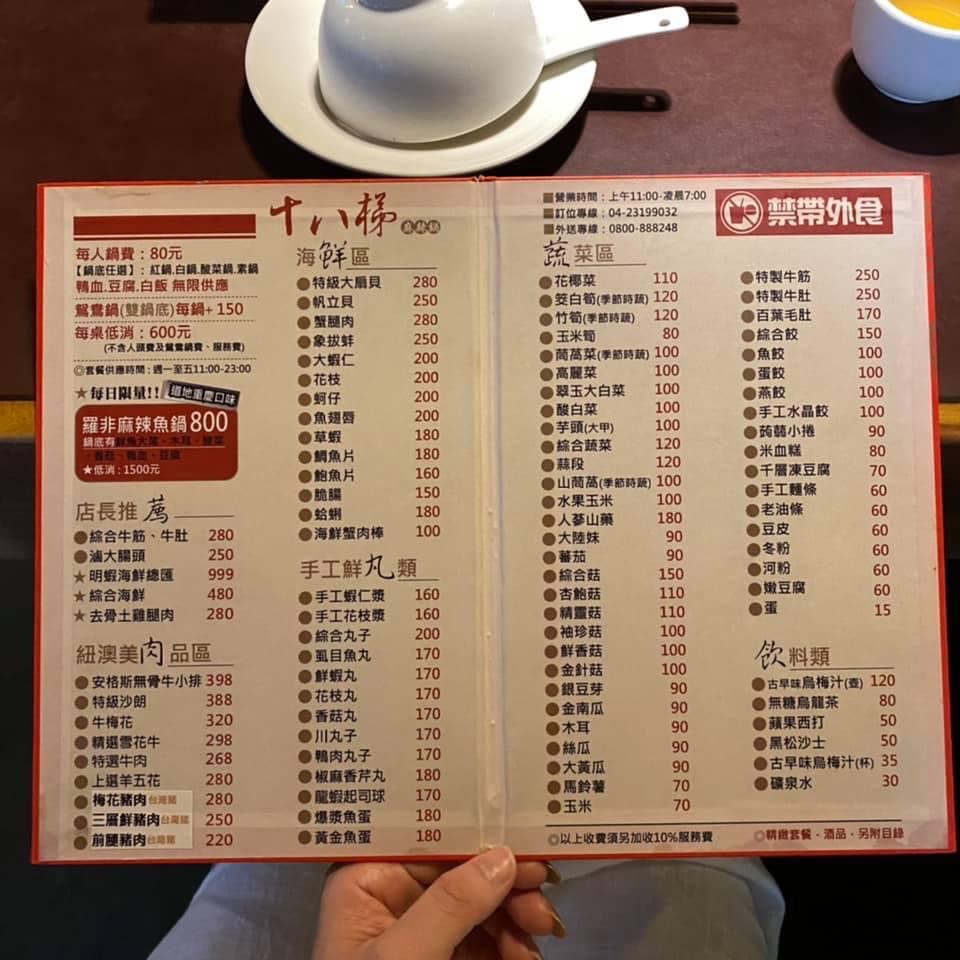 十八梯
麻辣鍋
每人鍋費：80元
【鍋底任選】：紅鍋.白鍋.酸菜鍋.素鍋
鴨血.豆腐.白飯 無限供應
鴛鴦鍋(雙鍋底)每鍋+150
每桌低消：600元
(不含人頭費及鴛鴦鍋費、服務費)
◎套餐供應時間：週一至五11:00-23:00
★每日限量!! 道地重慶口味
羅非麻辣魚鍋800
鍋底有鮮魚大尾、木耳、酸菜
、香菇、鴨血、豆腐
★低消：1500元
店長推薦
綜合牛筋、牛肚 280
滷大腸頭 250
★明蝦海鮮總匯 999
★綜合海鮮 480
★去骨土雞腿肉 280
紐澳美肉品區
安格斯無骨牛小排 398
特級沙朗 388
牛梅花 320
精選雪花牛 298
特選牛肉 268
上選羊五花 280
梅花豬肉台灣豬 280
三層鮮豬肉台灣豬 250
前腿豬肉台灣豬 220
海鮮區
特級大扇貝 280
帆立貝 250
蟹腿肉 280
象拔蚌 250
大蝦仁 200
花枝 200
蚵仔 200
魚翅唇 200
草蝦 180
鯛魚片 180
鮑魚片 160
脆腸 150
蛤蜊 180
海鮮蟹肉棒 100
手工鮮丸類
手工蝦仁漿 160
手工花枝漿 160
綜合丸子 200
虱目魚丸 170
鮮蝦丸 170
花枝丸 170
香菇丸 170
川丸子 170
鴨肉丸子 170
椒麻香芹丸 180
龍蝦起司球 170
爆漿魚蛋 180
黃金魚蛋 180
營業時間：上午11:00-凌晨7:00
訂位專線：04-23199032
外送專線：0800-888248
禁帶外食
蔬菜區
花椰菜 110
筊白筍(季節時蔬) 120
竹筍(季節時蔬) 120
玉米筍 80
茼萵菜(季節時蔬) 100
高麗菜 100
翠玉大白菜 100
酸白菜 100
芋頭(大甲) 100
綜合蔬菜 120
蒜段 120
山茼萵(季節時蔬) 100
水果玉米 100
人蔘山藥 180
大陸妹 90
蕃茄 90
綜合菇 150
杏鮑菇 110
精靈菇 110
袖珍菇 100
鮮香菇 100
金針菇 100
銀豆芽 90
金南瓜 90
木耳 90
絲瓜 90
大黃瓜 90
馬鈴薯 70
玉米 70
特製牛筋 250
特製牛肚 250
百葉毛肚 170
綜合餃 150
魚餃 100
蛋餃 100
燕餃 100
手工水晶餃 100
蒟蒻小捲 90
米血糕 80
千層凍豆腐 70
手工麵條 60
老油條 60
豆皮 60
冬粉 60
河粉 60
嫩豆腐 60
蛋 15
飲料類
古早味烏梅汁(壺) 120
無糖烏龍茶 80
蘋果西打 50
黑松沙士 50
古早味烏梅汁(杯) 35
礦泉水 30
◎以上收費須另加收10%服務費
◎精緻套餐·酒品·另附目錄